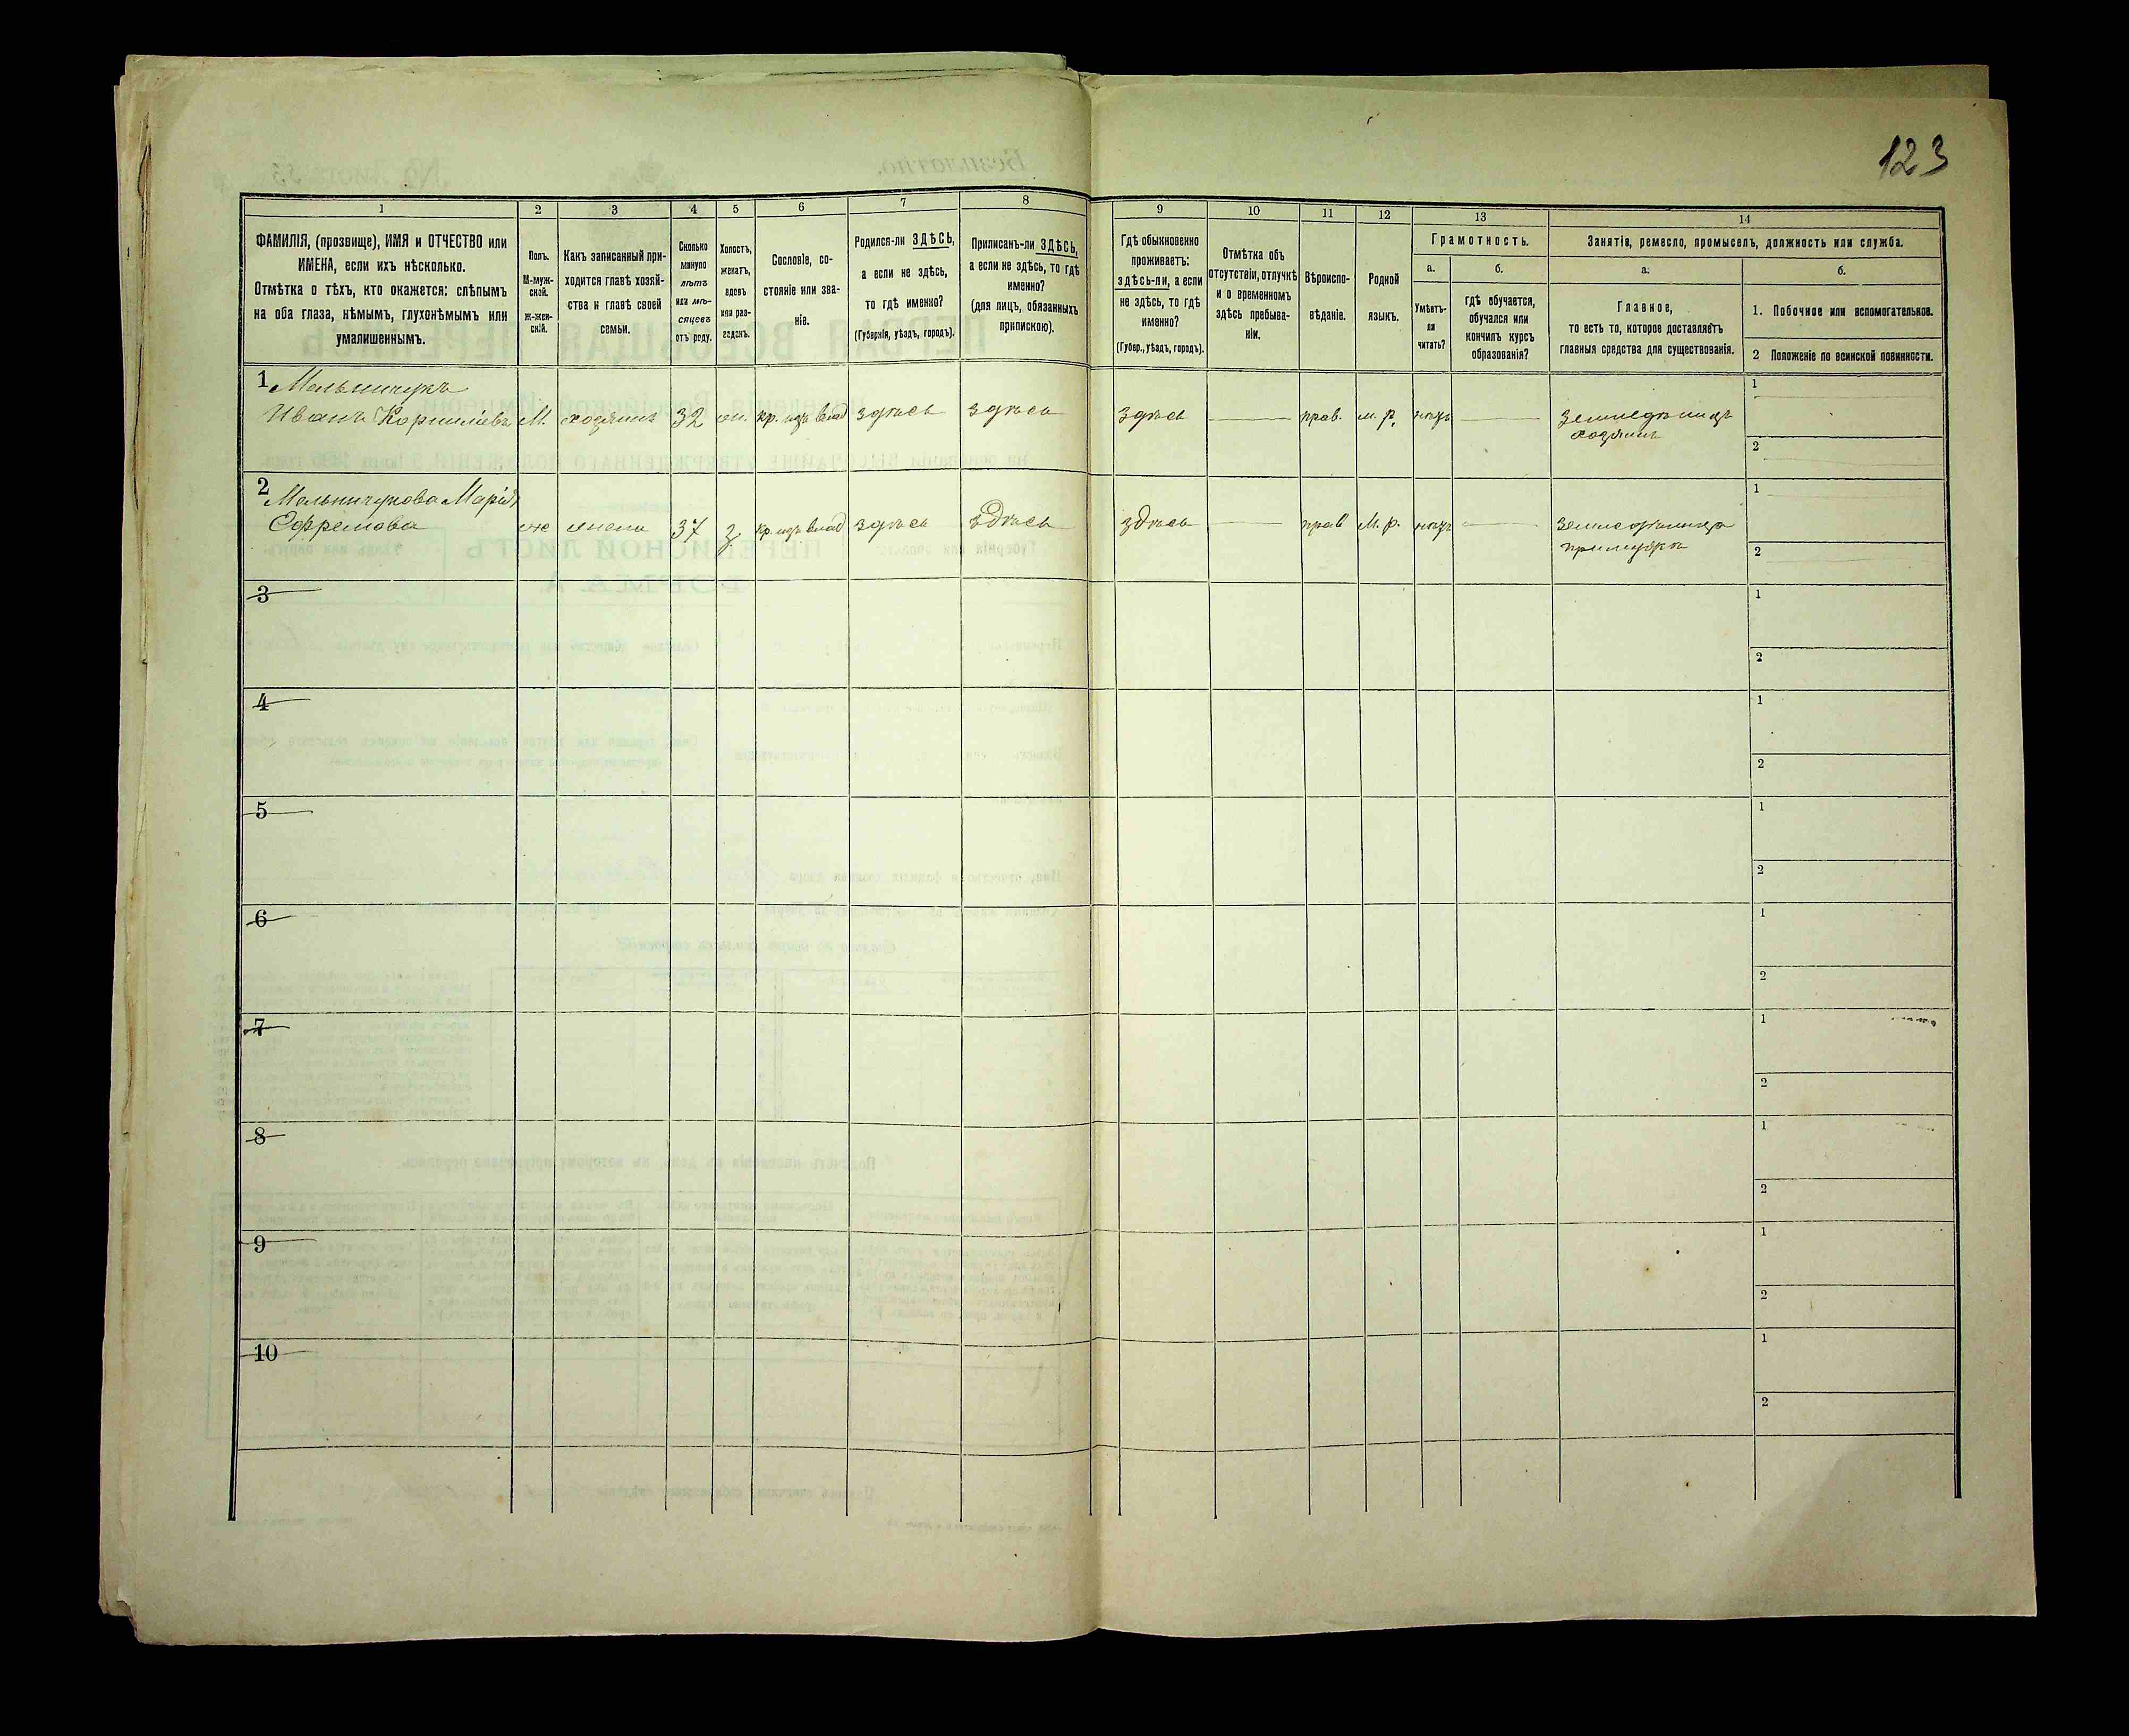 123
1
ФАМИЛІЯ, (прозвище), ИМЯ и ОТЧЕСТВО или
ИМЕНА, если ихъ нѣсколько.
Отмѣтка о тѣхъ, кто окажется: слѣпымъ
на оба глаза, нѣмымъ, глухонѣмымъ или
умалишеннымъ.
2
Полъ.
М-муж-
ской.
ж-жен-
скій.
3
Какъ записанный при-
ходится главѣ хозяй-
ства и главѣ своей
семьи.
4
Сколько
минуло
лѣтъ
или мѣ-
сяцевъ
отъ роду.
5
Холостъ,
женатъ,
вдовъ
или раз-
веденъ.
6
Сословіе, со-
стояніе или зва-
ніе.
7
Родился-ли ЗДѢСЬ,
а если не здѣсь,
то гдѣ именно?
(Губернія, уѣздъ, городъ).
8
Приписанъ-ли ЗДѢСЬ,
а если не здѣсь, то гдѣ
именно?
(для лицъ, обязанныхъ
припискою).
9
Гдѣ обыкновенно
проживаетъ:
здѣсь-ли, а если
не здѣсь, то гдѣ
именно?
(Губер., уѣздъ, городъ).
10
Отмѣтка объ
отсутствіи, отлучкѣ
и о временномъ
здѣсь пребыва-
ніи.
11
Вѣроиспо-
вѣданіе.
12
Родной
языкъ.
13
Грамотность.
а.
Умѣетъ-
ли
читать?
б.
гдѣ обучается,
обучался или
кончилъ курсъ
образованія?
14
Занятія, ремесло, промыселъ, должность или служба.
а.
Главное,
то есть то, которое доставляетъ
главныя средства для существованія.
б.
1. Побочное или вспомогательное.
2 Положеніе по воинской повинности.
1 Мельничукъ
Иванъ Корниліевъ М. хозяинъ 32 ж. кр. изъ влад здѣсь здѣсь здѣсь прав. м. р. нѣтъ земледѣлецъ
хозяинъ
1
2
2 Мельничукова Марія
Ефремова ж жена 37 з. кр. изъ влад здѣсь здѣсь здѣсь прав М. р. нѣтъ
1
2
3
1
2
4
1
2
5
1
2
6
1
2
7
1
2
8
1
2
9
1
2
10
1
2